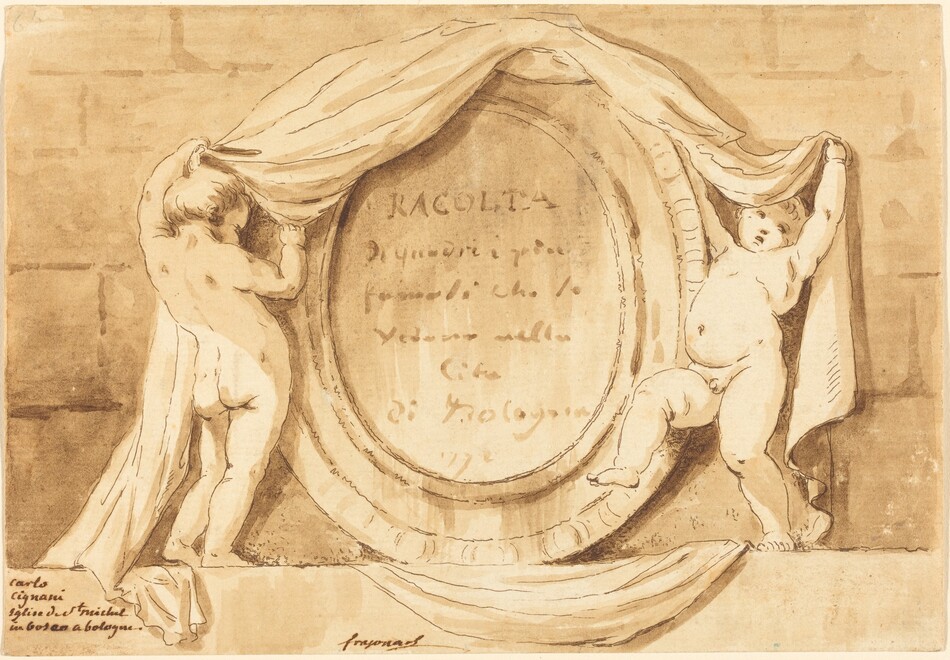 RACOLTA
di quadri i piu
famosi che si
vedano nella
Cita
di Bologna
carlo
cignani
Eglise de St. michel
in bosco a bologne.
fragonard